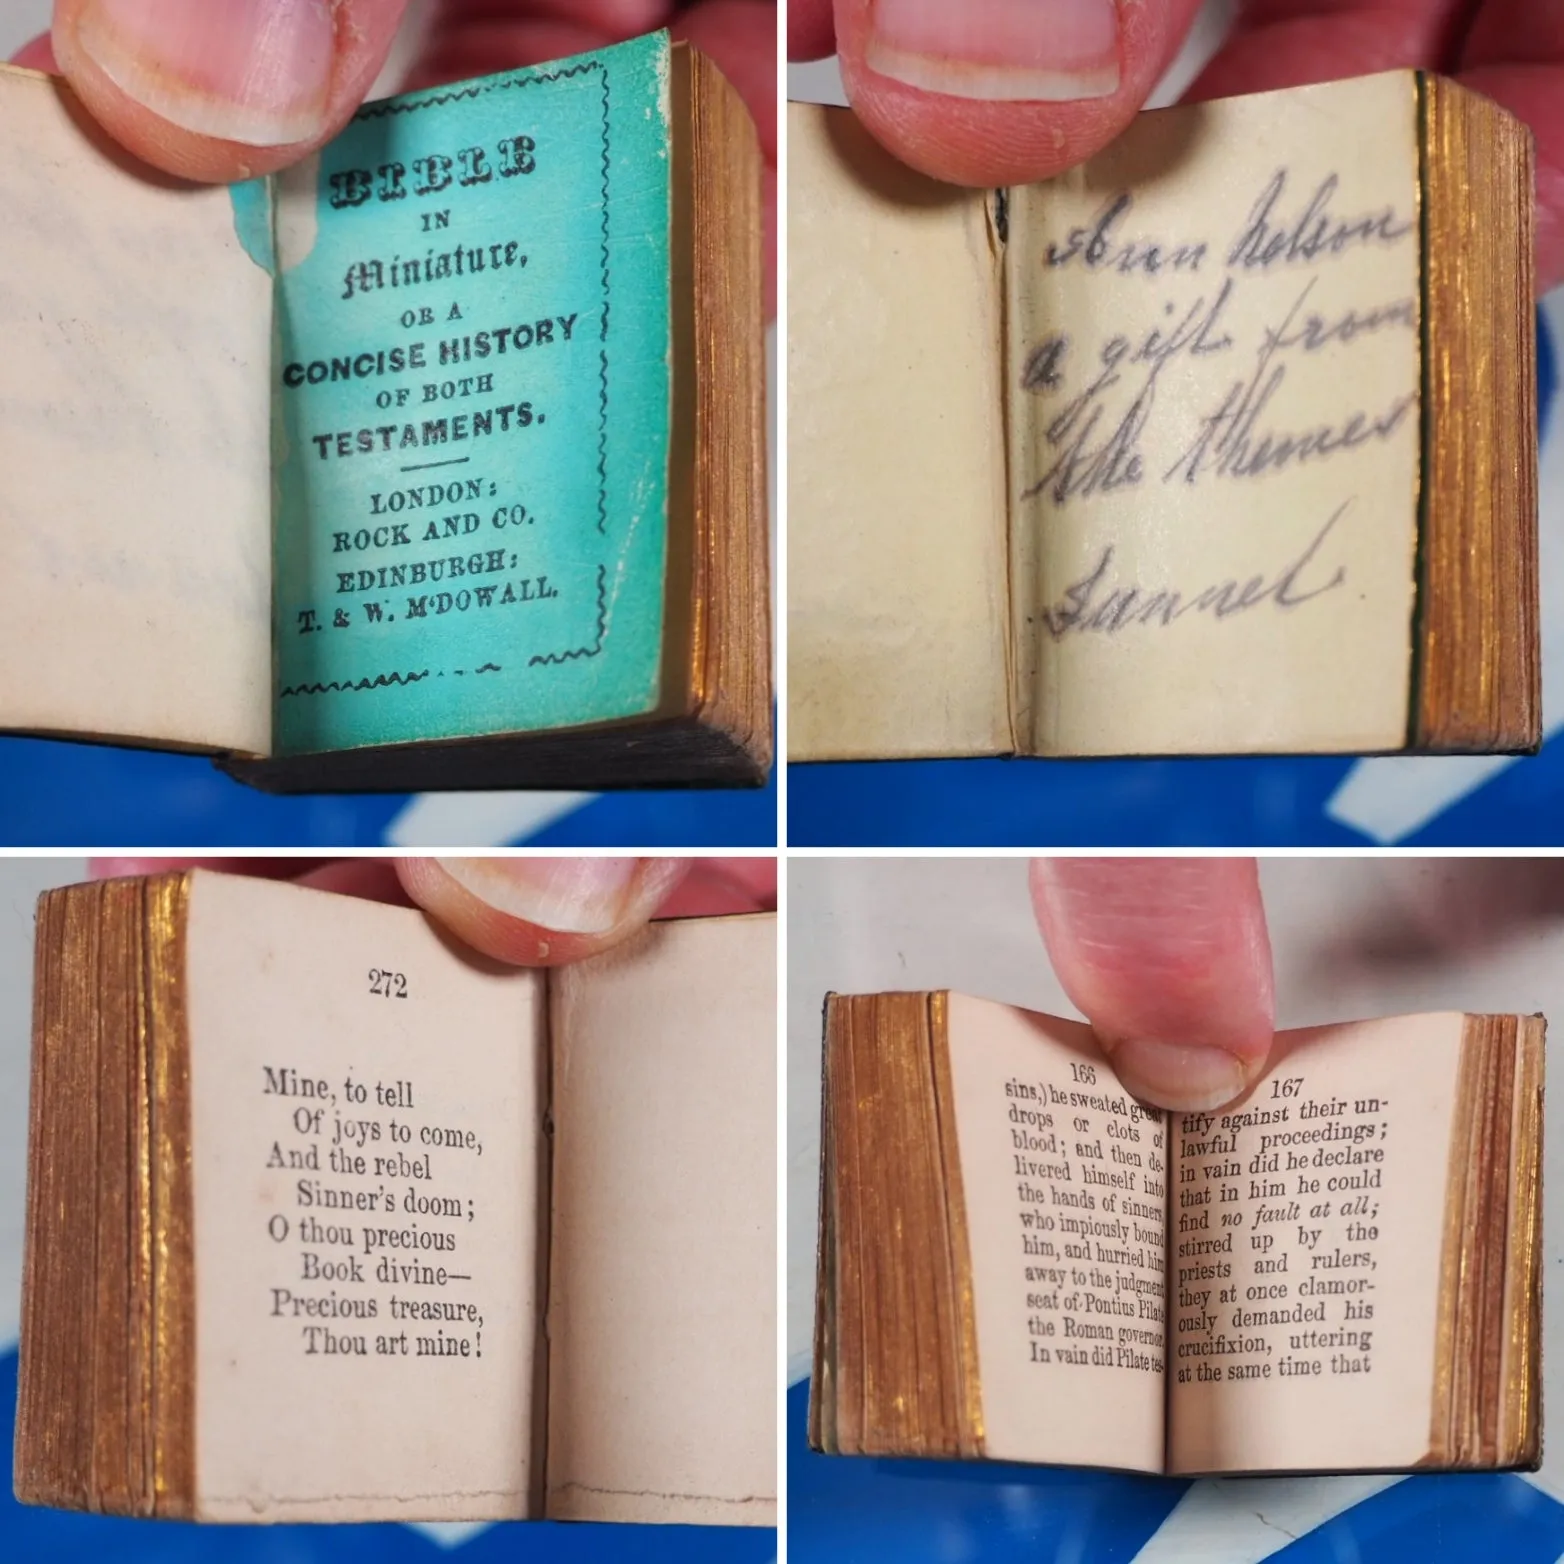 BIBLE
IN
Miniature,
OR A
CONCISE HISTORY
OF BOTH
TESTAMENTS.
LONDON:
ROCK AND CO.
EDINBURGH:
T. & W. M‘DOWALL.
Ann Nelson
a gift from
the
272
Mine, to tell
Of joys to come,
And the rebel
Sinner's doom;
O thou precious
Book divine—
Precious treasure,
Thou art mine!
166
sins,) he sweated great
drops or clots of
blood; and then de-
livered himself into
the hands of sinners,
who impiously bound
him, and hurried him
away to the judgment
seat of Pontius Pilate
the Roman governor.
In vain did Pilate tes-
167
tify against their un-
lawful proceedings;
in vain did he declare
that in him he could
find no fault at all;
stirred up by the
priests and rulers,
they at once clamor-
ously demanded his
crucifixion, uttering
at the same time that